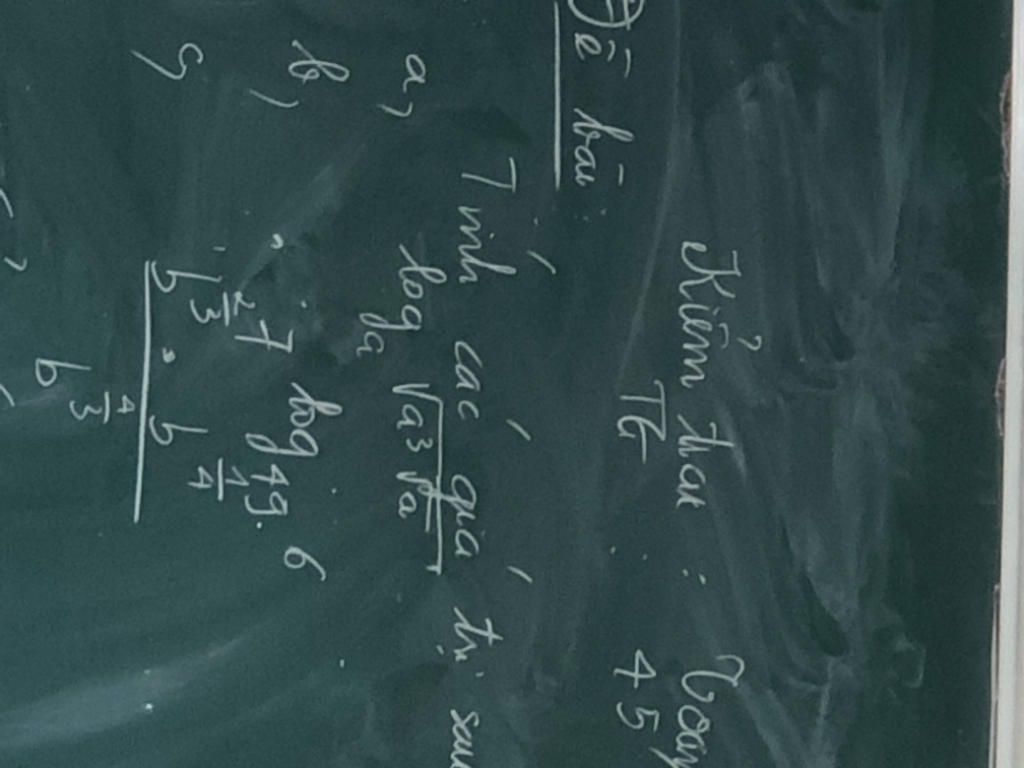 Kiểm tra : Toán
TG 45
Đề bài:
Tính các giá trị sau
a, log_a √(a³√a)
b, 7^(log_49 6)
c, (b^(2/3) . b^(1/4)) / b^(4/3)